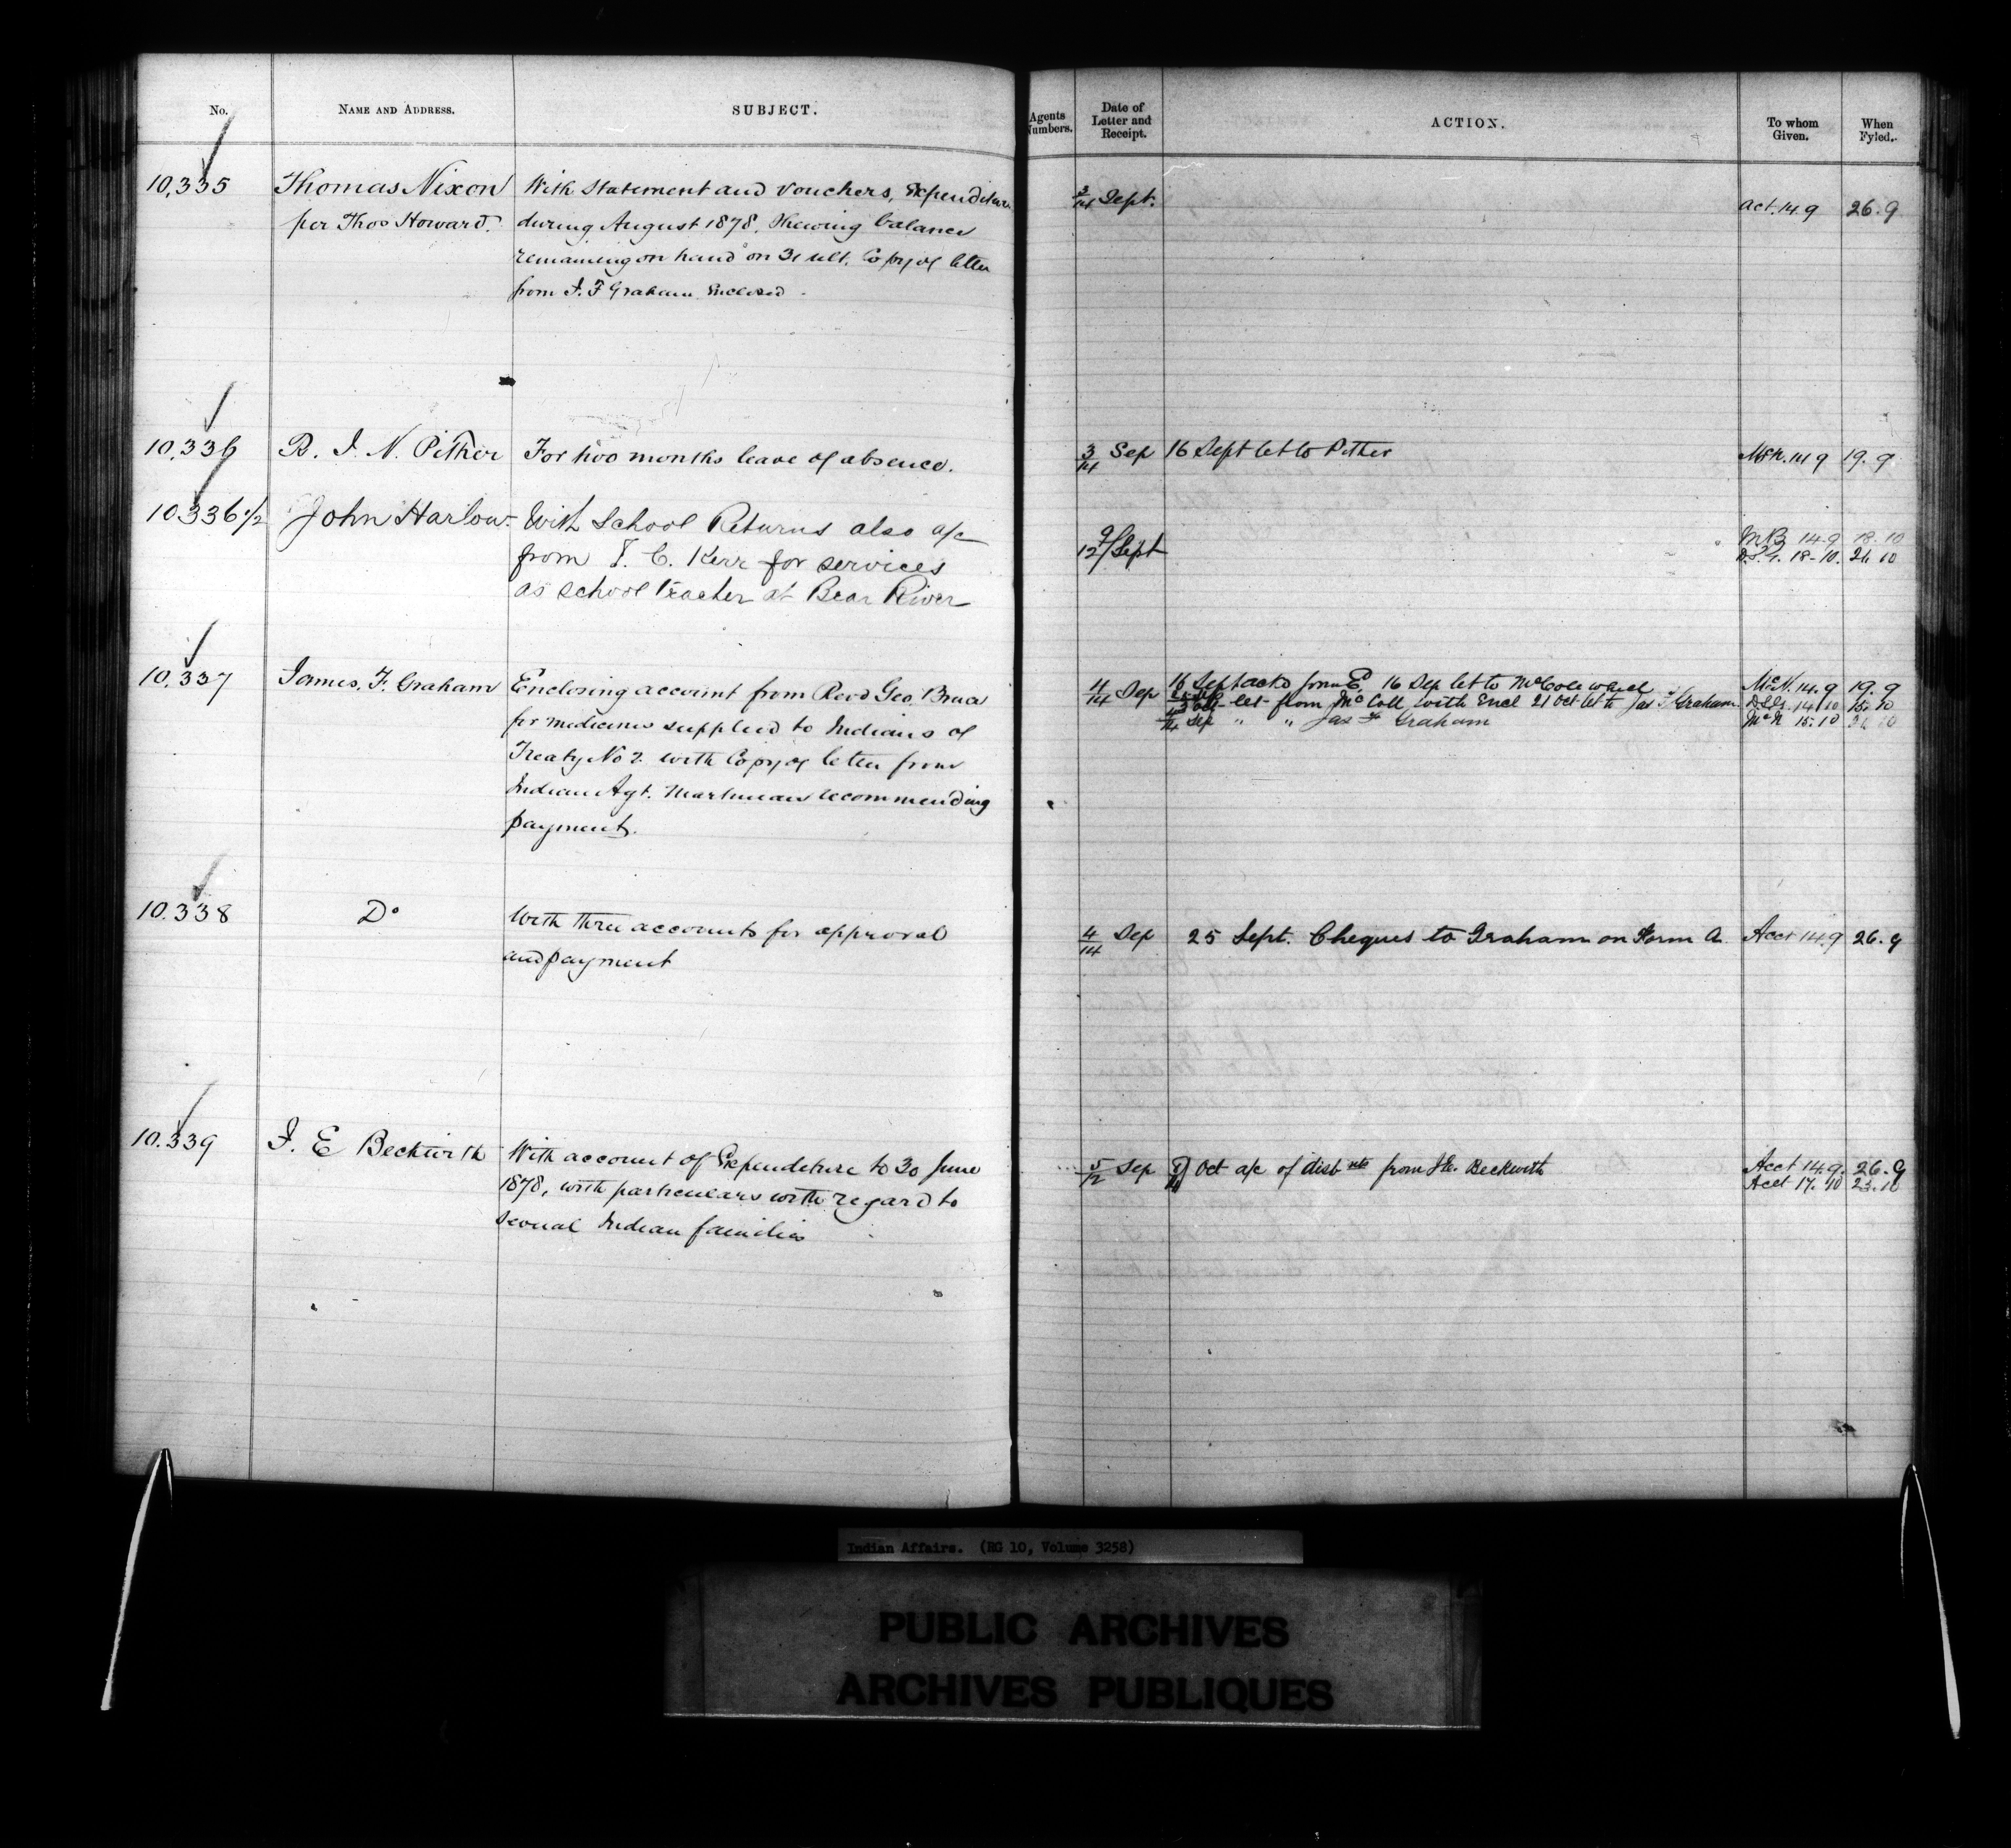 No. NAME AND ADDRESS. SUBJECT.
10,335 Thomas Nixon With Statement and vouchers, Expenditure
per Thos Howard. during August 1878, Shewing balance
remaining on hand on 31 ult. Copy of letter
from J. F Graham Enclosed.
10.336 R. J. N. Pither For two months leave of absence.
10.336 1/2 John Harlow With School Returns also a/c
from T. C. Kerr for services
as school teacher at Bear River
10.337 James. F. Graham Enclosing account from Revd Geo. Bruce
for medicines supplied to Indians of
Treaty No 2. with Copy of letter from
Indian Agt. Martineau recommending
payment.
10.338 Do With three accounts for approval
and payment
10.339 J. E Beckwith With account of Expenditure to 30 June
1878, with particulars with regard to
several Indian families
Agents Numbers. Date of Letter and Receipt. ACTION. To whom Given. When Fyled.
3/14 Sept. act. 14.9 26.9
3/14 Sep 16 Sept let to Pither McN. 14 9 19.9
9/12 Sept MB 14.9 18.10
D.S.G. 18-10. 26 10
4/14 Sep 16 Sep ackd form E. 16 Sep let to McColl McN. 14.9 19.9
let from McColl with Encl 21 Oct let to Jas F Graham D.S.G. 14/10 15.10
4/14 Sep " " Jas F Graham McN 15.10
4/14 Sep 25 Sept. Cheques to Graham on Form A. Acct 14.9 26.9
5/12 Sep Oct a/c of disbnts from J.E. Beckwith Acct 14.9. 26.9
Acct 17.10 23.10
Indian Affairs. (RG 10, Volume 3258)
PUBLIC ARCHIVES
ARCHIVES PUBLIQUES